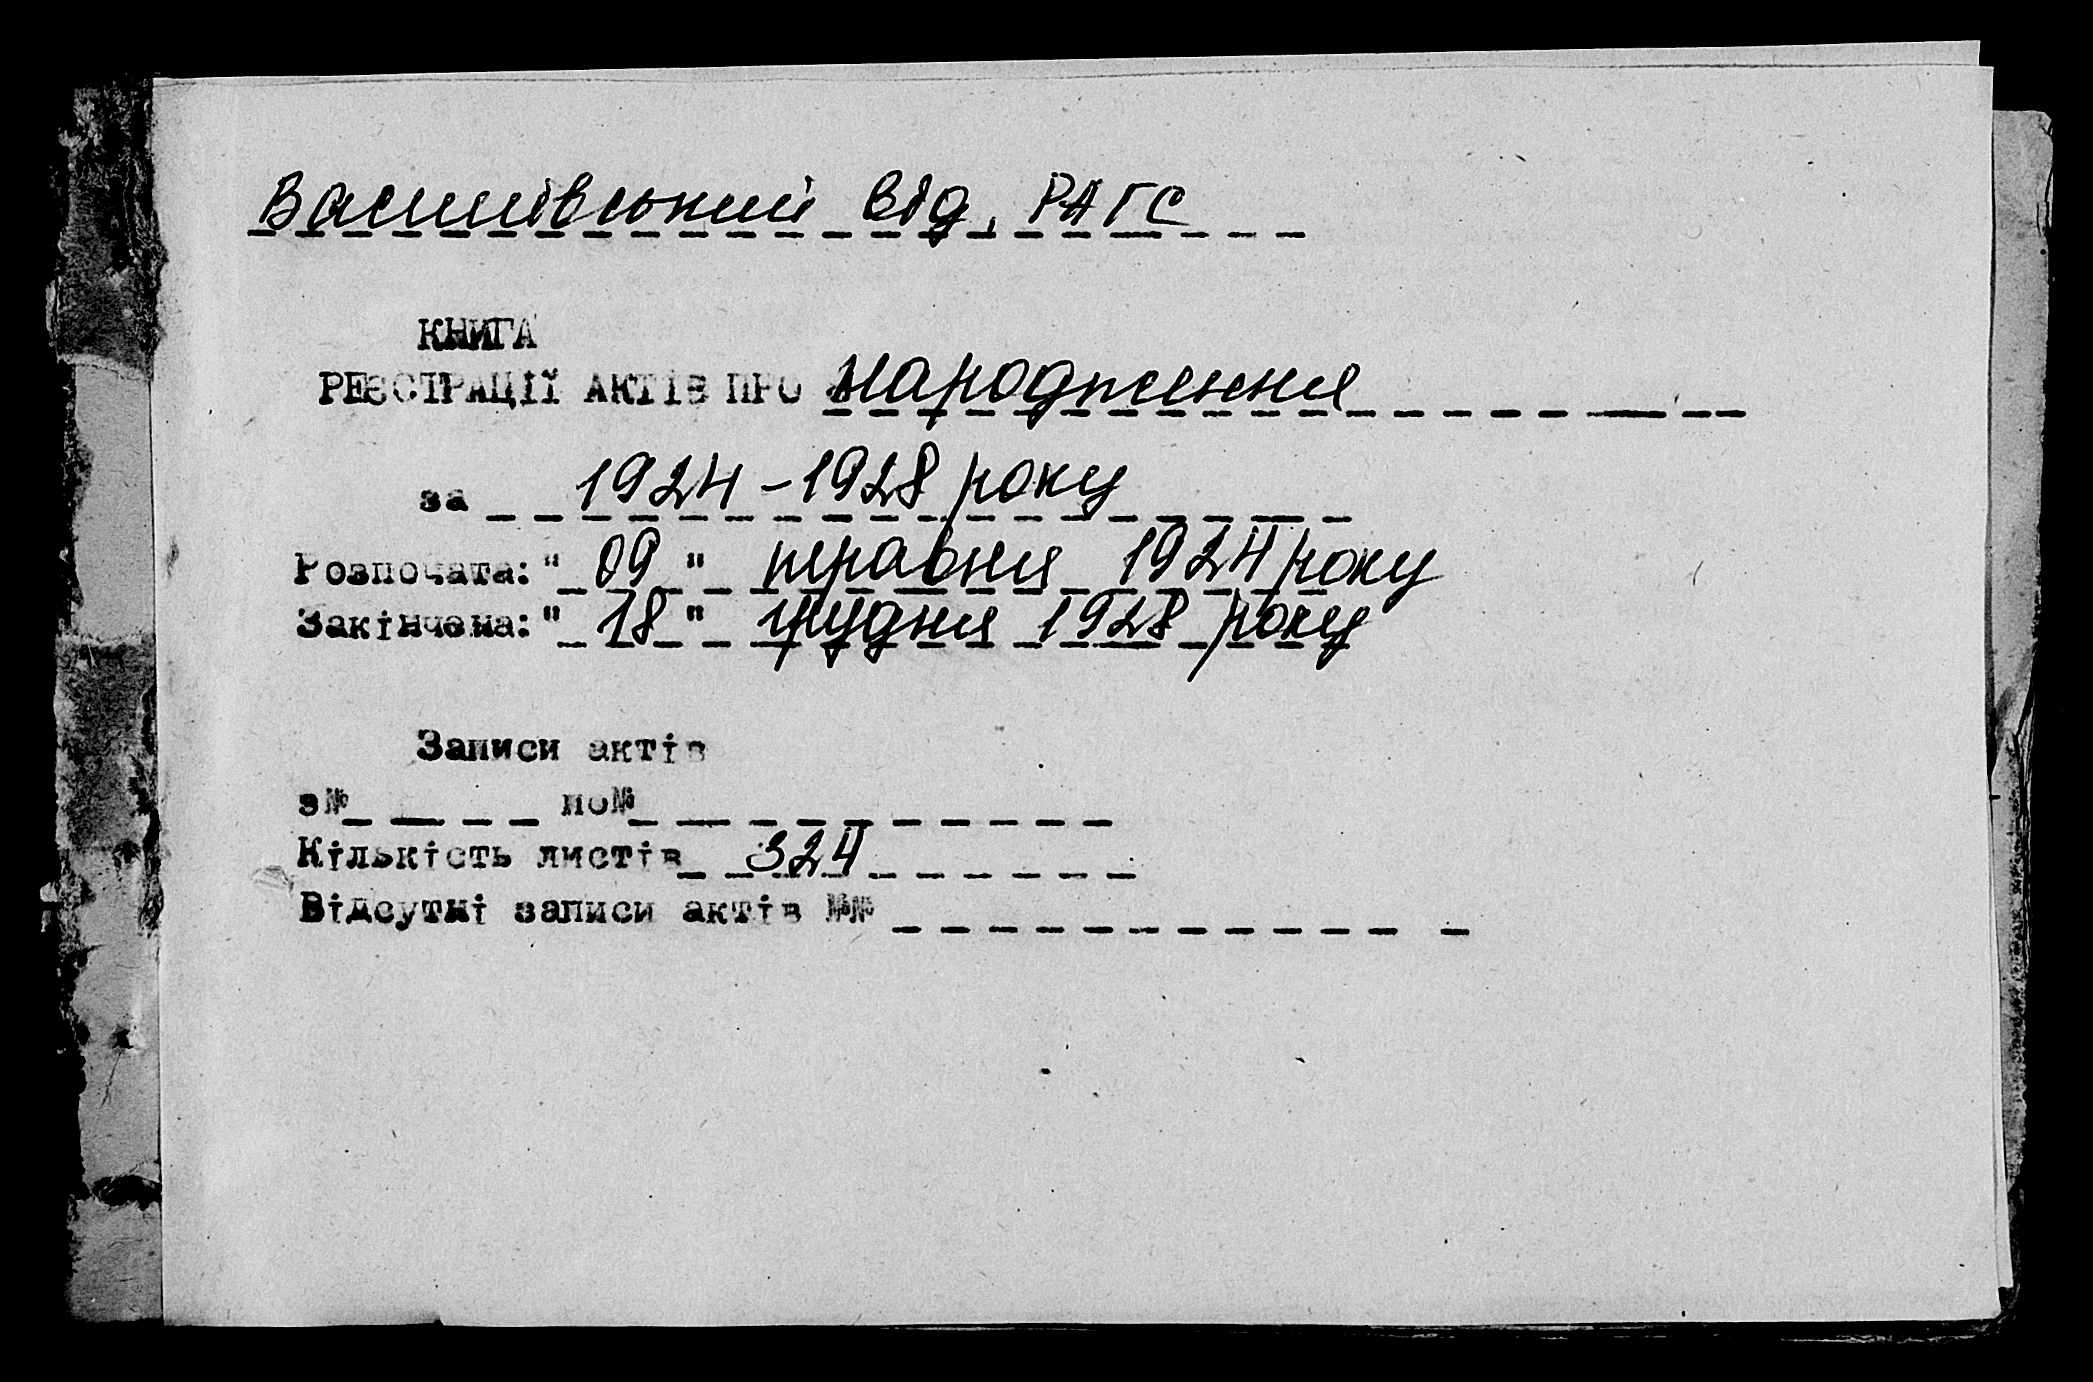 Василівський від. РАГС
КНИГА
РЕЄСТРАЦІЇ АКТІВ ПРО народження
за 1924-1928 року
Розпочата: "09" травня 1924 року
Закінчена: "18" грудня 1928 року
Записи актів
з№ по№
Кількість листів 324
Відсутні записи актів №№